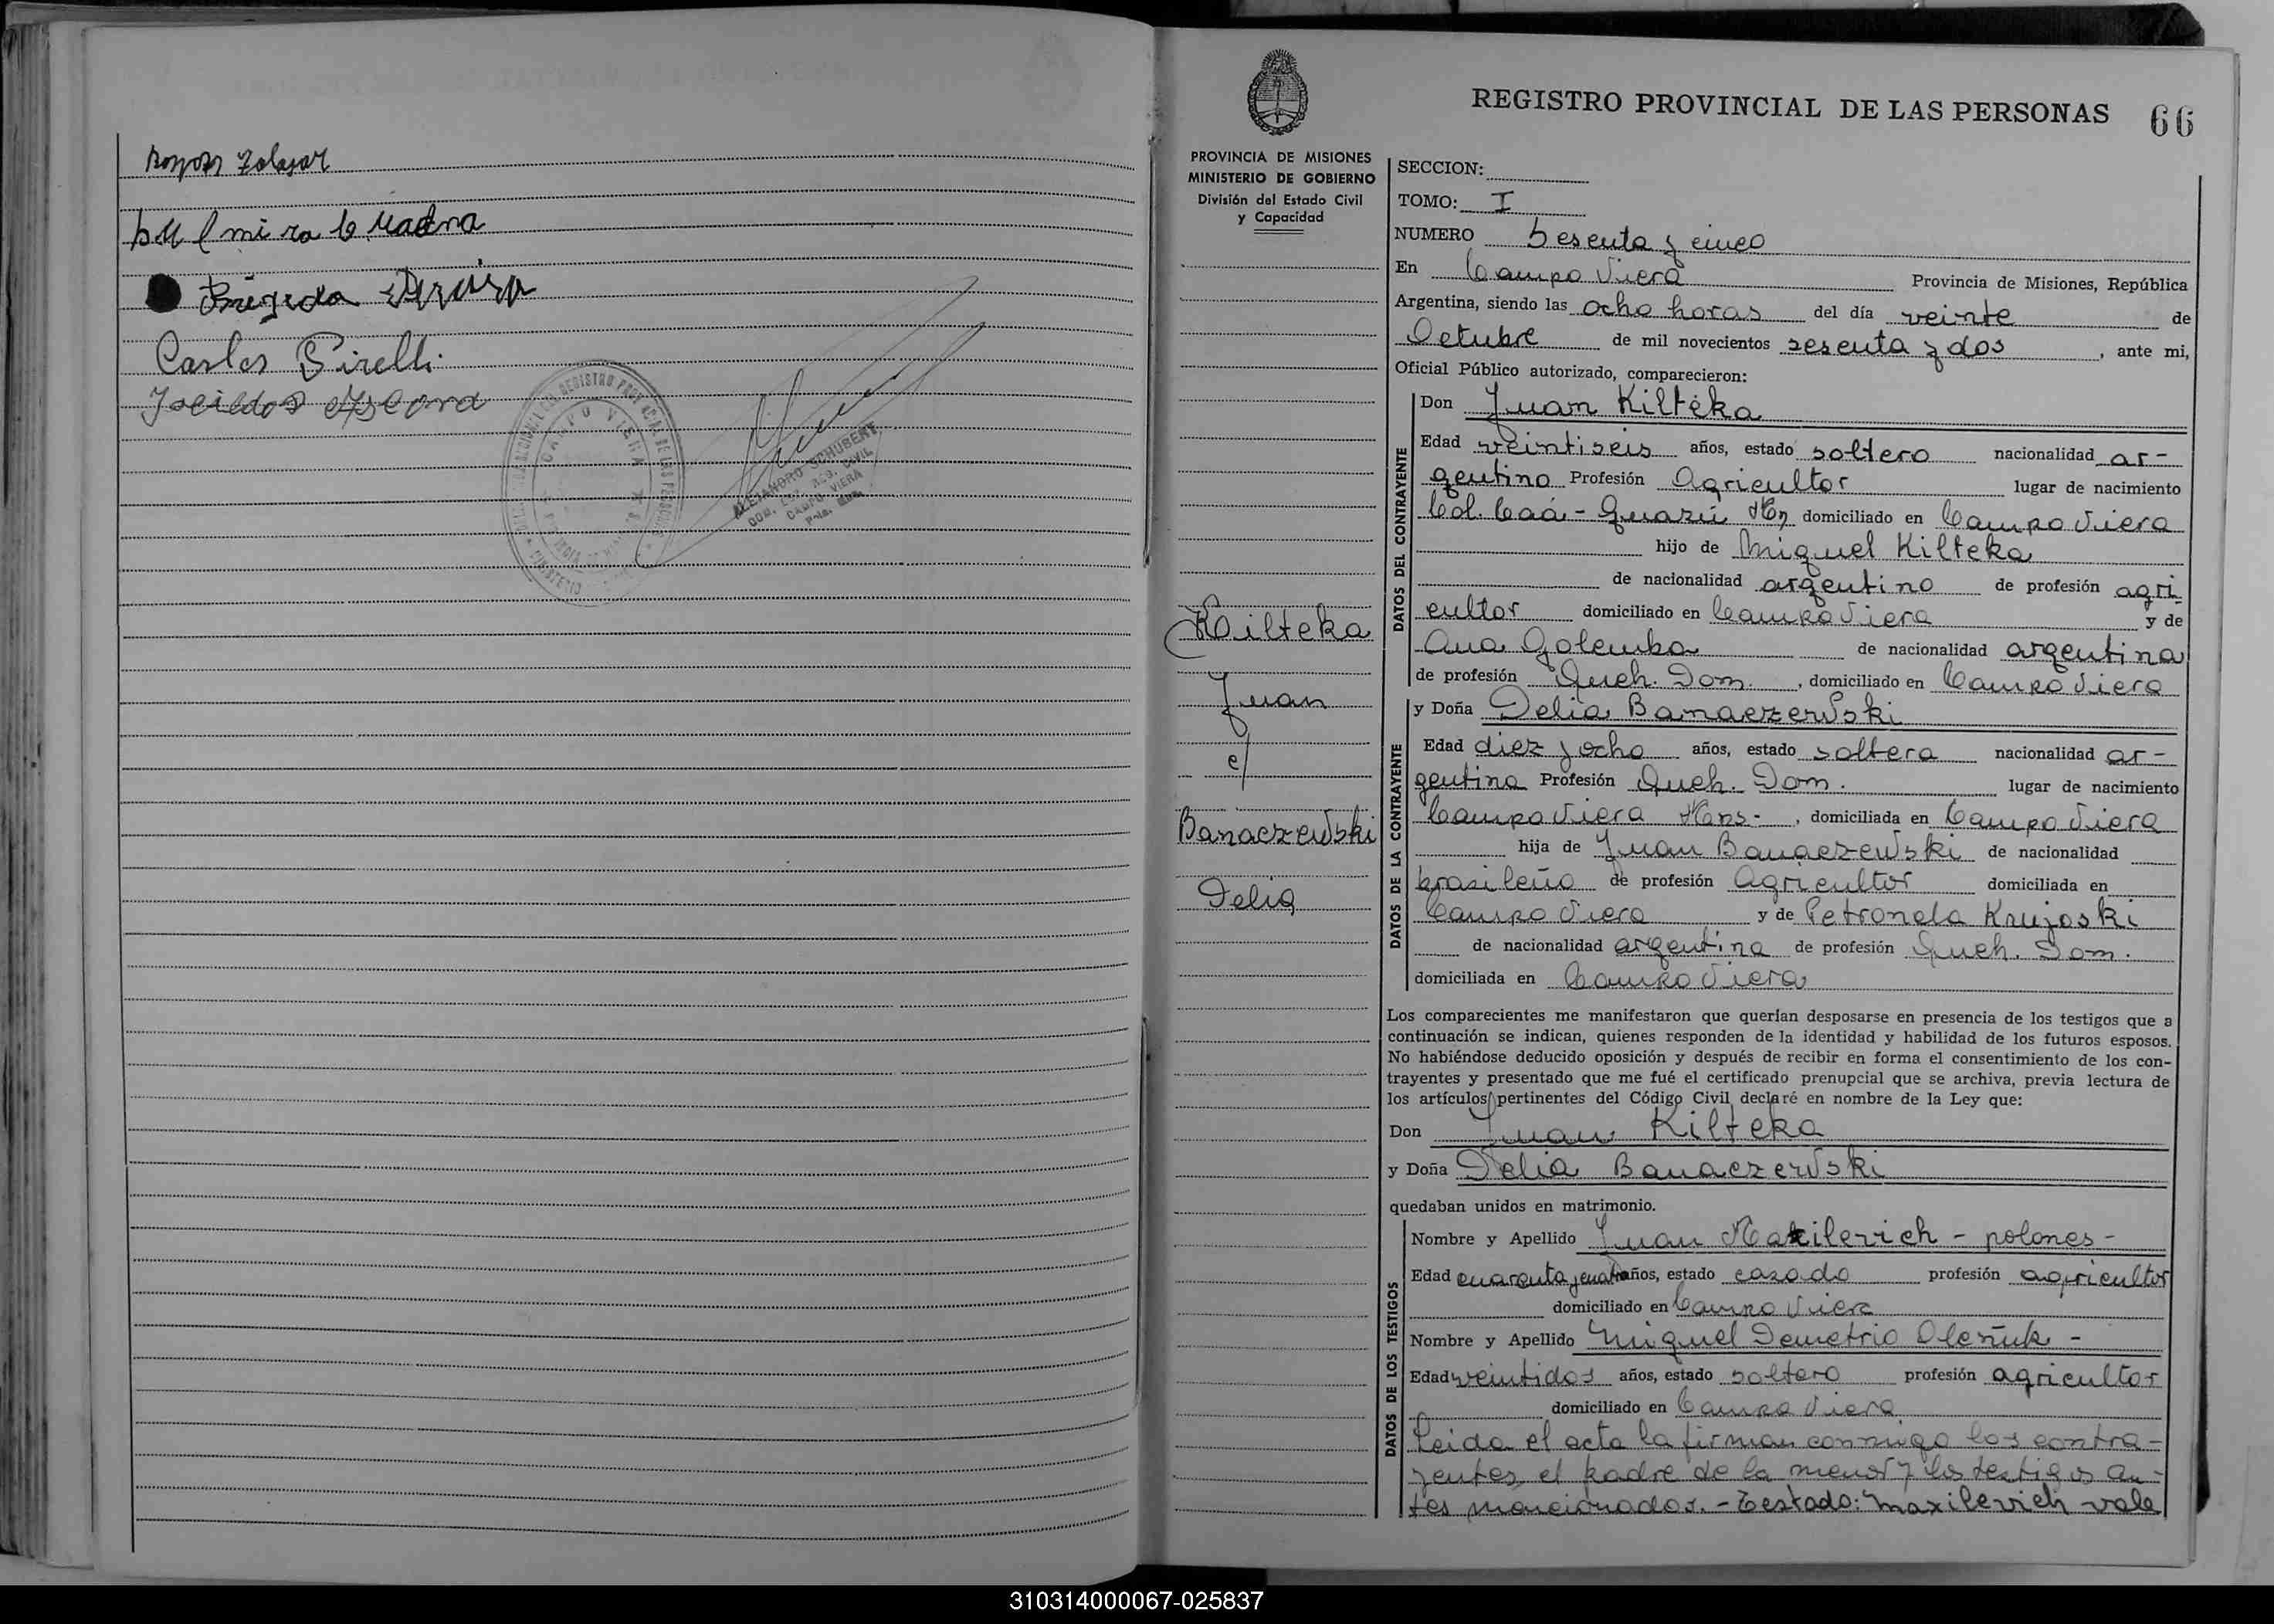 Carlos Pirelli
CAMPO VIERA
ALEJANDRO SCHUBERT
REG. CIVIL
CAMPO VIERA
REGISTRO PROVINCIAL DE LAS PERSONAS 66
PROVINCIA DE MISIONES
MINISTERIO DE GOBIERNO
División del Estado Civil
y Capacidad
Kilteka
Juan
c/
Banaczewski
Delia
SECCION:
TOMO: I
NUMERO Sesenta y cinco
En Campo Viera Provincia de Misiones, República
Argentina, siendo las ocho horas del día veinte de
Octubre de mil novecientos sesenta y dos, ante mi,
Oficial Público autorizado, comparecieron:
DATOS DEL CONTRAYENTE
Don Juan Kilteka
Edad veintiseis años, estado soltero nacionalidad ar-
gentino Profesión Agricultor lugar de nacimiento
Col. Caá-Guazú domiciliado en Campo Viera
hijo de Miguel Kilteka
de nacionalidad argentino de profesión agri-
cultor domiciliado en Campo Viera y de
Ana Golemba de nacionalidad argentina
de profesión Queh. Dom., domiciliado en Campo Viera
DATOS DE LA CONTRAYENTE
y Doña Delia Banaczewski
Edad diez y ocho años, estado soltera nacionalidad ar-
gentina Profesión Queh. Dom. lugar de nacimiento
Campo Viera, domiciliada en Campo Viera
hija de Juan Banaczewski de nacionalidad
brasileño de profesión Agricultor domiciliada en
Campo Viera y de Petronela Krujoski
de nacionalidad argentina de profesión Queh. Dom.
domiciliada en Campo Viera
Los comparecientes me manifestaron que querían desposarse en presencia de los testigos que a
continuación se indican, quienes responden de la identidad y habilidad de los futuros esposos.
No habiéndose deducido oposición y después de recibir en forma el consentimiento de los con-
trayentes y presentado que me fué el certificado prenupcial que se archiva, previa lectura de
los artículos pertinentes del Código Civil declaré en nombre de la Ley que:
Don Juan Kilteka
y Doña Delia Banaczewski
quedaban unidos en matrimonio.
DATOS DE LOS TESTIGOS
Nombre y Apellido Juan Maxilevich - polones -
Edad cuarenta y cuatro años, estado casado profesión agricultor
domiciliado en Campo Viera
Nombre y Apellido Miguel Demetrio Olenuk -
Edad veintidos años, estado soltero profesión agricultor
domiciliado en Campo Viera
Leida el acta la firman conmigo los contra-
yentes, el padre de la menor y los testigos an-
tes mencionados. - Testado: Maxilevich vale
310314000067-025837